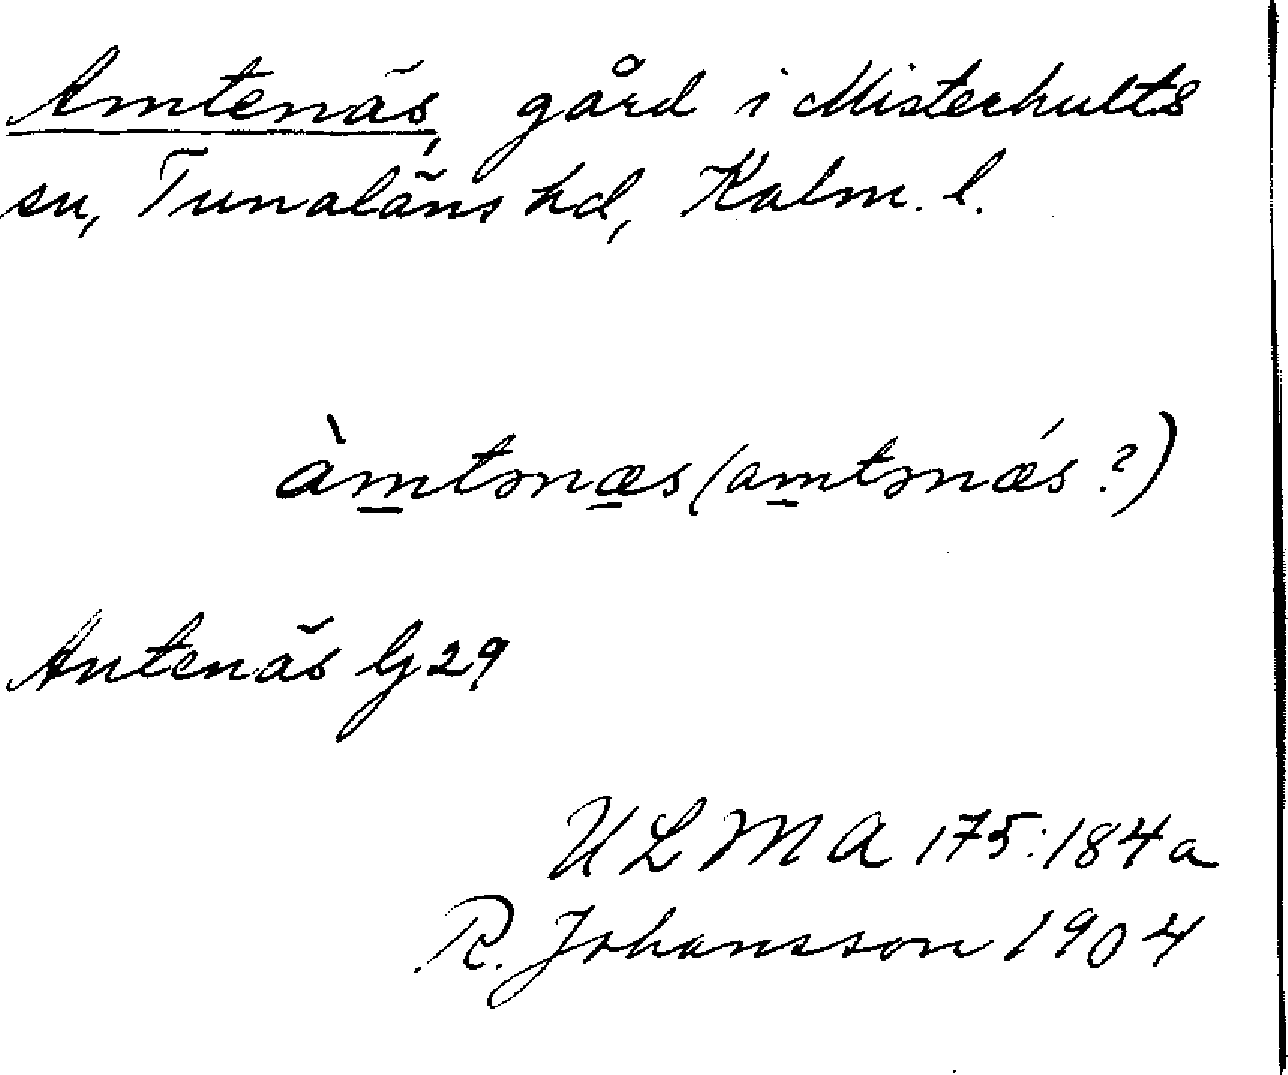 Amtenäs, gård i Misterhults
sn, Tunaläns hd, Kalm. l.
àmtnæs (amtnǽs?)
Antenäs G 29
ULMA 175:184a
R. Johansson 1904